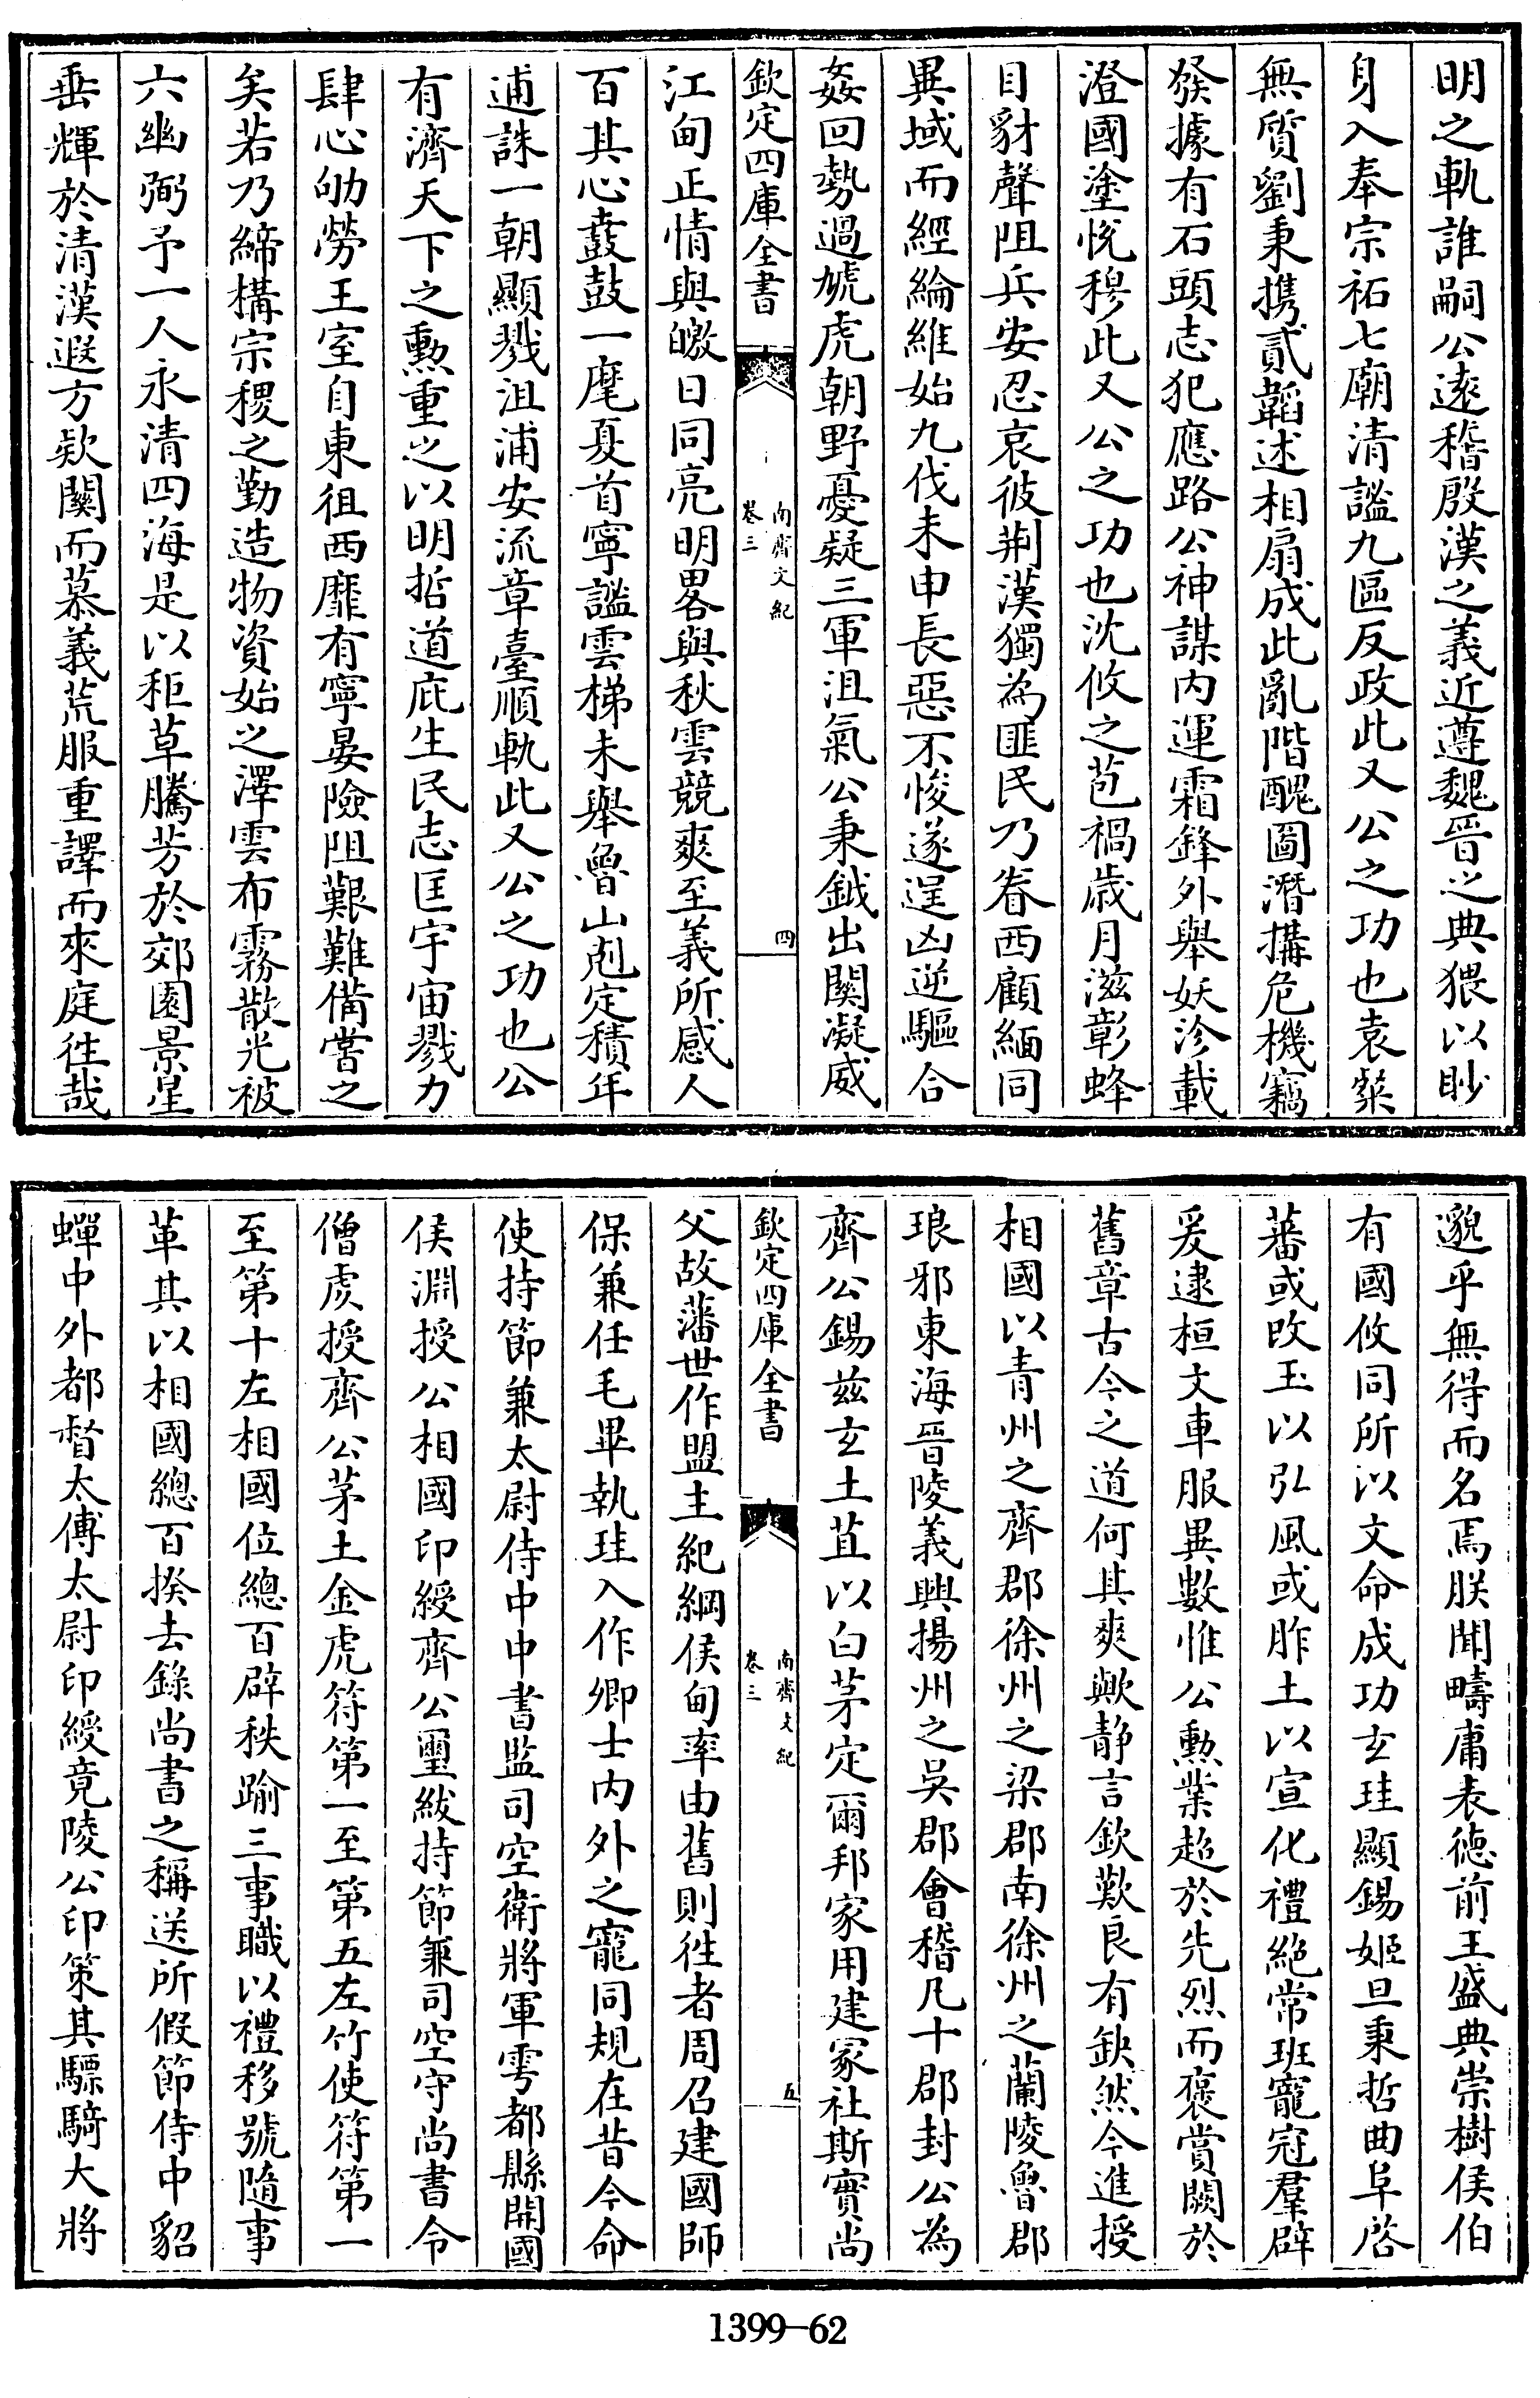 明之軌誰嗣公遠稽殷漢之義近遵魏晉之典猥以眇
身入奉宗祏七廟清謐九區反政此又公之功也袁粲
無質劉秉携貳韜述相扇成此亂階醜圖潛搆危機竊
發據有石頭志犯應路公神謀内運霜鋒外舉妖沴載
澄國塗恱穆此又公之功也沈攸之苞禍歲月滋彰蜂
目豺聲阻兵安忍哀彼荆漢獨為匪民乃眷西顧緬同
異域而經綸維始九伐未申長惡不悛遂逞凶逆驅合
姦回勢過虓虎朝野憂疑三軍沮氣公秉鉞出關凝威
欽定四庫全書
南齊文紀
卷三
四
江甸正情與皦日同亮明畧與秋雲競爽至義所感人
百其心鼖鼓一麾夏首寧謐雲梯未舉魯山剋定積年
逋誅一朝顯戮沮浦安流章臺順軌此又公之功也公
有濟天下之勲重之以明哲道庇生民志匡宇宙戮力
肆心劬勞王室自東徂西靡有寧晏險阻艱難備嘗之
矣若乃締構宗稷之勤造物資始之澤雲布霧散光被
六幽弼予一人永清四海是以秬草騰芳於郊園景星
垂輝於清漢遐方欵闗而慕義荒服重譯而來庭徃哉
邈乎無得而名焉朕聞疇庸表德前王盛典崇樹侯伯
有國攸同所以文命成功玄珪顯錫姬旦秉哲曲阜啓
蕃或改玉以弘風或胙土以宣化禮絶常班寵冠羣辟
爰逮桓文車服異數惟公勲業超於先烈而褒賞闕於
舊章古今之道何其爽歟静言欽歎良有缺然今進授
相國以青州之齊郡徐州之梁郡南徐州之蘭陵魯郡
琅邪東海晉陵義興揚州之吳郡會稽凡十郡封公為
齊公錫兹玄土苴以白茅定爾邦家用建冡社斯實尚
欽定四庫全書
南齊文紀
卷三
五
父故藩世作盟主紀綱侯甸率由舊則徃者周召建國師
保兼任毛畢執珪入作卿士内外之寵同規在昔今命
使持節兼太尉侍中中書監司空衛將軍雩都縣開國
侯淵授公相國印綬齊公璽紱持節兼司空守尚書令
僧虔授齊公茅土金虎符第一至第五左竹使符第一
至第十左相國位總百辟秩踰三事職以禮移號隨事
革其以相國總百揆去錄尚書之稱送所假節侍中貂
蟬中外都督太傅太尉印綬竟陵公印策其驃騎大將
1399-62